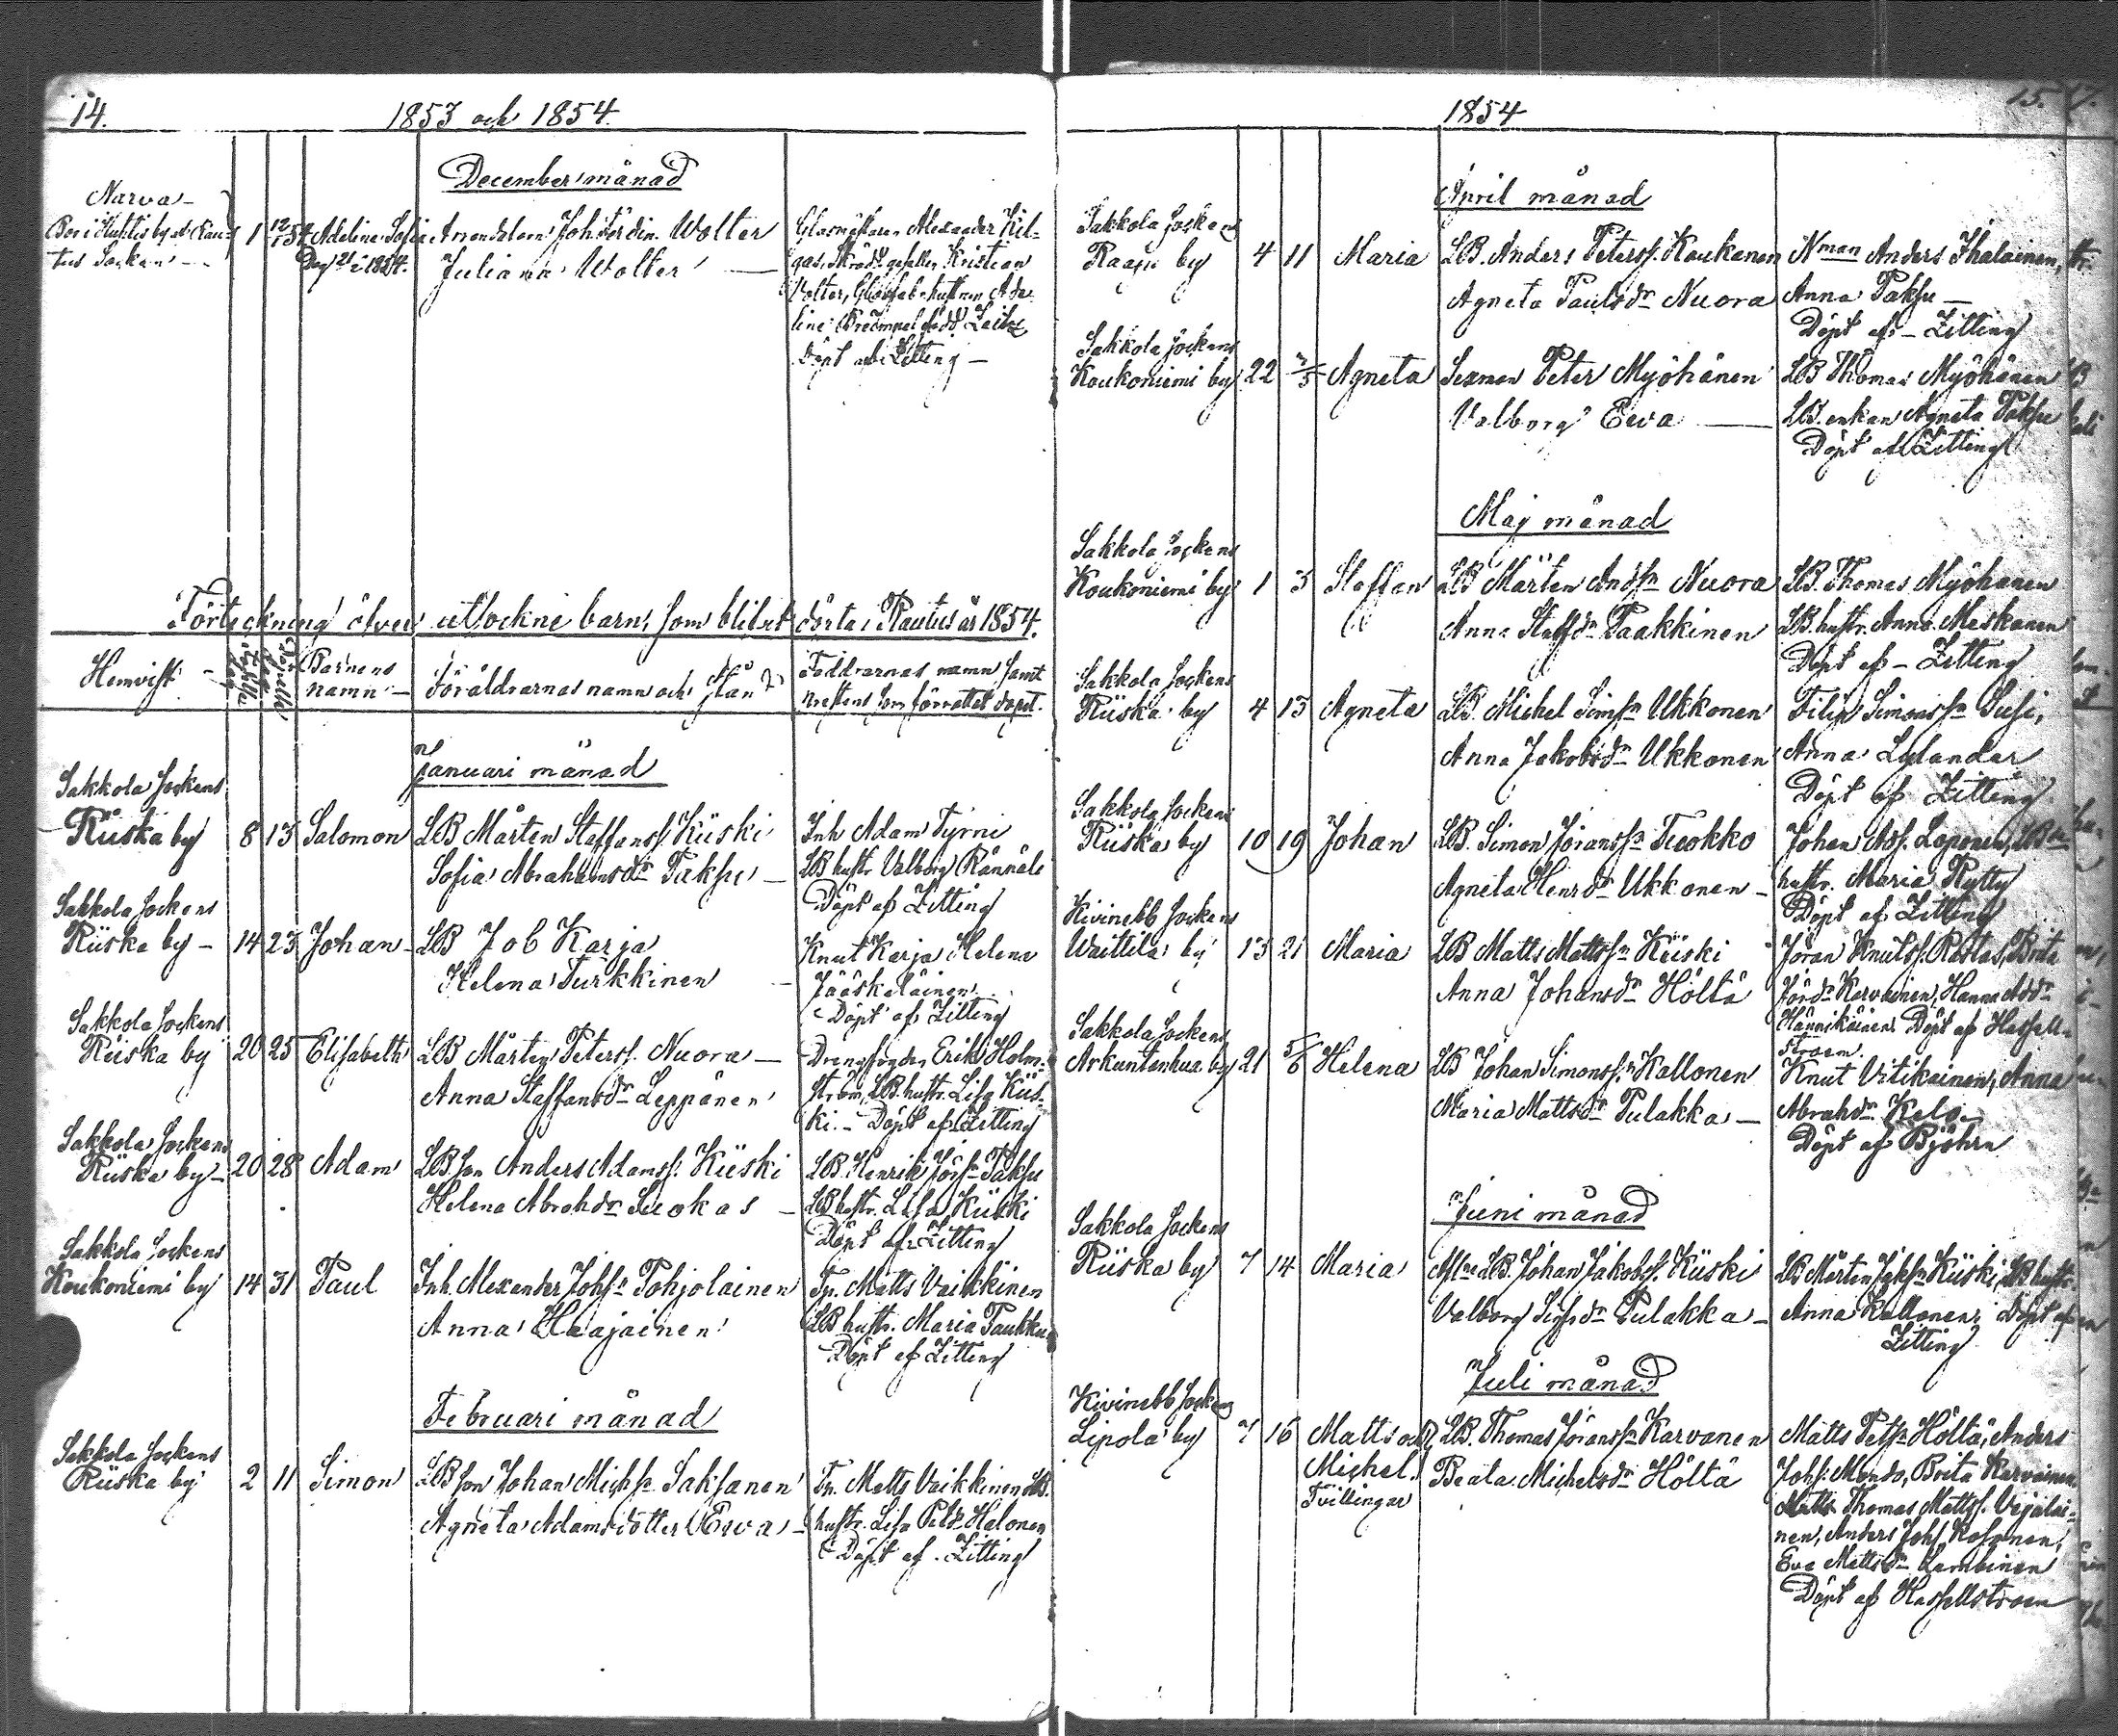 14.
1853 och 1854.
December månad
Narva
Bor i Huhtis by af Rau-
tus Socken
1 12/1 54 Adelina Sofia
Döp 21/1 1854.
Arrendatorn Joh Ferdin. Wolter
Juliana Wolter
Glasmästaren Alexander Kil-
gas, Skrädd gesällen Kristian
Wolter, hustrun Ade-
line född
Döpt af Zitting
Förteckning öfver utsockne barn, som blifvit döpta i Rautus år 1854.
Hemvist
Födelse dag
Döpelse dag
Barnens
namn
Föräldrarnas namn och stånd
Faddrarnas namn samt
prestens som förrättat dopet.
Januari månad
Sakkola Sockens
Riiska by 8 13 Salomon
LB Mårten Staffanss. Kiiski
Sofia Abrahamsdr Paksu
Inh Adam Tyrni
LB hustr Valborg Rännäli
Döpt af Zitting
Sakkola Sockens
Riiska by 14 23 Johan
LB Job Karja
Helena Turkkinen
Knut Karja Helena
Jääskeläinen
Döpt af Zitting
Sakkola Sockens
Riiska by 20 25 Elisabeth
LB Mårten Peterss. Nuora
Anna Staffansdr Leppänen
Drengfogden Erik Holm-
ström, LB. hustr. Lisa Kiis-
ki. Döpt af Zitting
Sakkola Sockens
Riiska by 20 28 Adam
LB. son Anders Adamss. Kiiski
Helena Abrahdr Suokas
LB. Henrik Jörsn Paksu
LB hustr. Lisa Kiiski
Döpt af Zitting
Sakkola Sockens
Koukoniemi by 14 31 Paul
Inh. Alexander Johsn Pohjolainen
Anna Haajainen
Tp. Matts Vaikkinen
LB hustr. Maria Paukku
Döpt af Zitting
Februari månad
Sakkola Sockens
Riiska by 2 11 Simon
LB son Johan Michsn Saksanen
Agneta Adamsdotter Ewa
Tp. Matts Vaikkinen LB.
hustr. Lisa Petdr Halonen
Döpt af Zitting
1854
15.
April månad
Sakkola Socken
Raaju by 4 11 Maria
LB. Anders Peterss. Kaukanen
Agneta Paulsdr Nuora
Nman Anders Ihalainen,
Anna Paksu
Döpt af Zitting
Sakkola Sockens
Koukoniemi by 22 2/5 Agneta
Sexman Peter Myöhänen
Valborg Ewa
LB Thomas Myöhänen
LB. enkan Agneta Paksu
Döpt af Zitting
Maj månad
Sakkola Sockens
Koukoniemi by 1 3 Staffan
LB Mårten Andsn Nuora
Anna Staffdr Paakkinen
LB. Thomas Myöhänen
LB. hustr. Anna Meskanen
Döpt af Zitting
Sakkola Sockens
Riiska by 4 13 Agneta
LB. Michel Simsn Ukkonen
Anna Jakobsdr Ukkonen
Filip Simonssn Susi,
Anna Lylander
Döpt af Zitting
Sakkola Sockens
Riiska by 10 19 Johan
LB. Simon Jöranssn Tuokko
Agneta Henrdr Ukkonen
Johan Ads. Laponen, LB
hustr. Maria Rytty
Döpt af Zitting
Kivinebb Sockens
Waittila by 13 21 Maria
LB Matts Mattssn Kiiski
Anna Johansdr Höltä
Jöran Knutss. Rastas, Brita
Jörsdr Karvainen, Hanna Addr
Hännikäinen Döpt af Hassell-
stroem.
Sakkola Sockens
Arkuntanhua by 21 5/6 Helena
LB Johan Simonss. Kallonen
Maria Mattsdr Pulakka
Knut Vitikainen, Anna
Abrahdr Kelo
Döpt af Björhn
Juni månad
Sakkola Sockens
Riiska by 7 14 Maria
Aflne LB. Johan Jakobss. Kiiski
Valborg Sigfrdr Pulakka
LB Mårten Jaksn Kiiski, LB hustr.
Anna Kallonen, Döpt af
Zitting
Juli månad
Kivinebb Sockens
Lipola by 7 16 Matts och
Michel.
Tvillingar
LB. Thomas Jöranssn Karvanen
Beata Michelsdr Höltä
Matts Petsn Höltä, Anders
Johs. Mando, Brita Karvainen
Matts Thomas Mattss. Vejalai-
nen, Anders Johs. Kosonen,
Eva Mattsdr Lambinen
Döpt af Hassellstroem